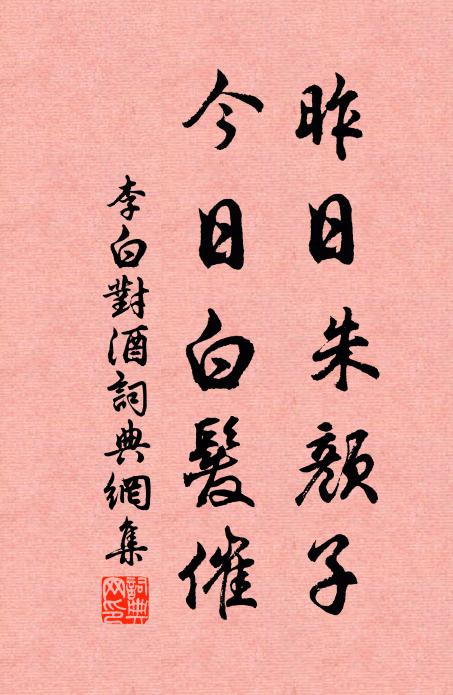 昨日朱顏子
今日白髮催
李白對酒詞典網集
詞典网印